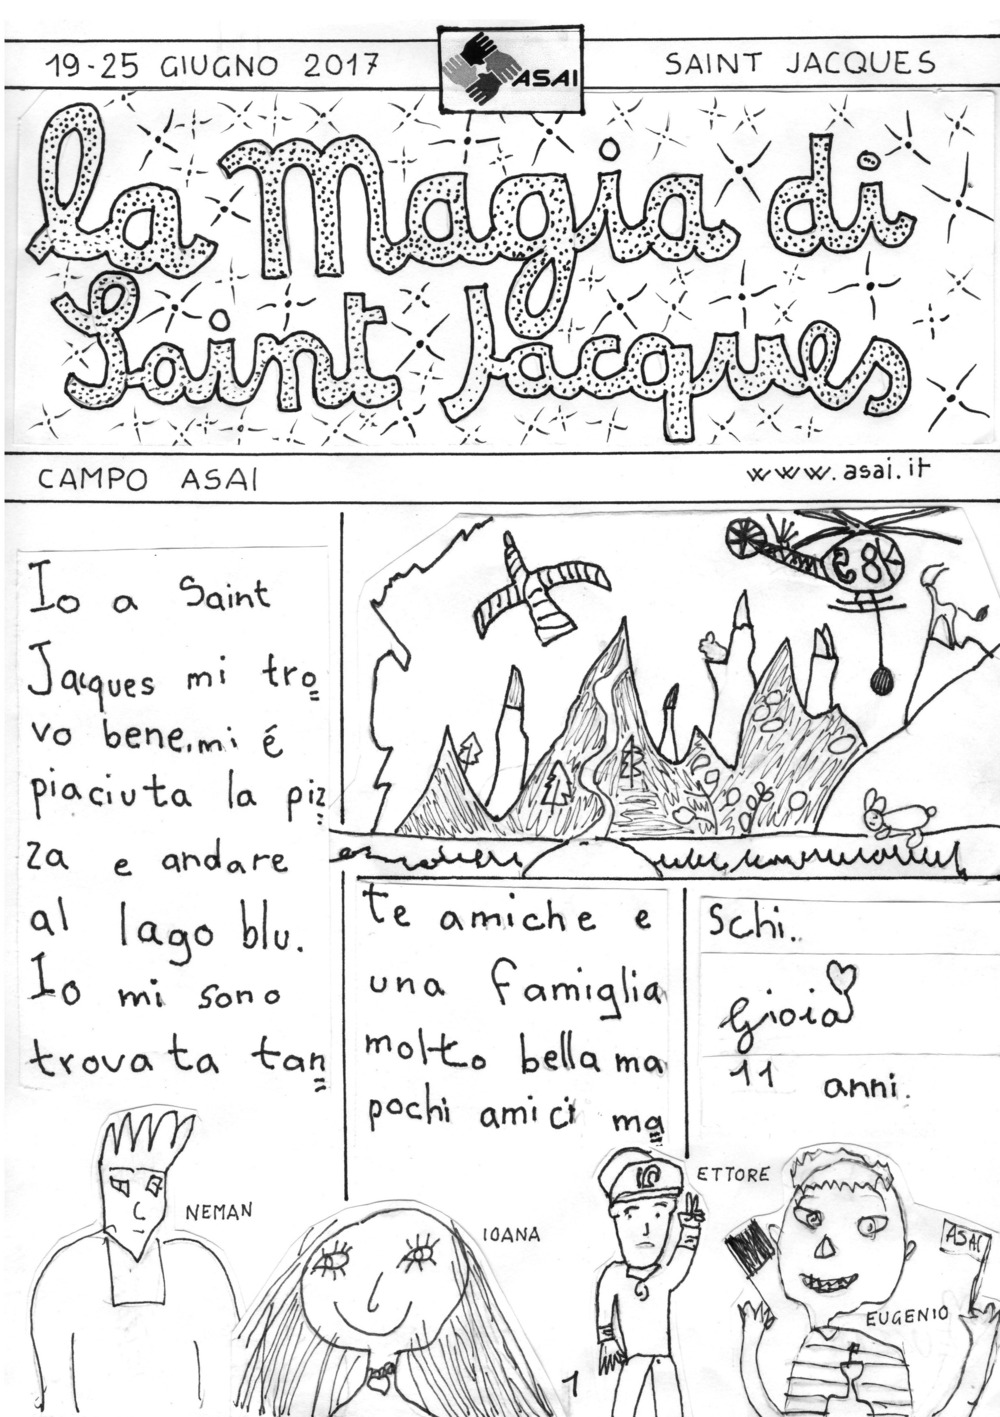 19-25 GIUGNO 2017
ASAI
SAINT JACQUES
la Magia di
Saint Jacques
CAMPO ASAI
www.asai.it
Io a Saint
Jacques mi tro
vo bene. mi é
piaciuta la piz
za e andare
al lago blu.
Io mi sono
trovata tan
te amiche e
una famiglia
molto bella ma
pochi amici ma
schi..
Gioia
11 anni.
NEMAN
IOANA
ETTORE
ASAI
EUGENIO
1